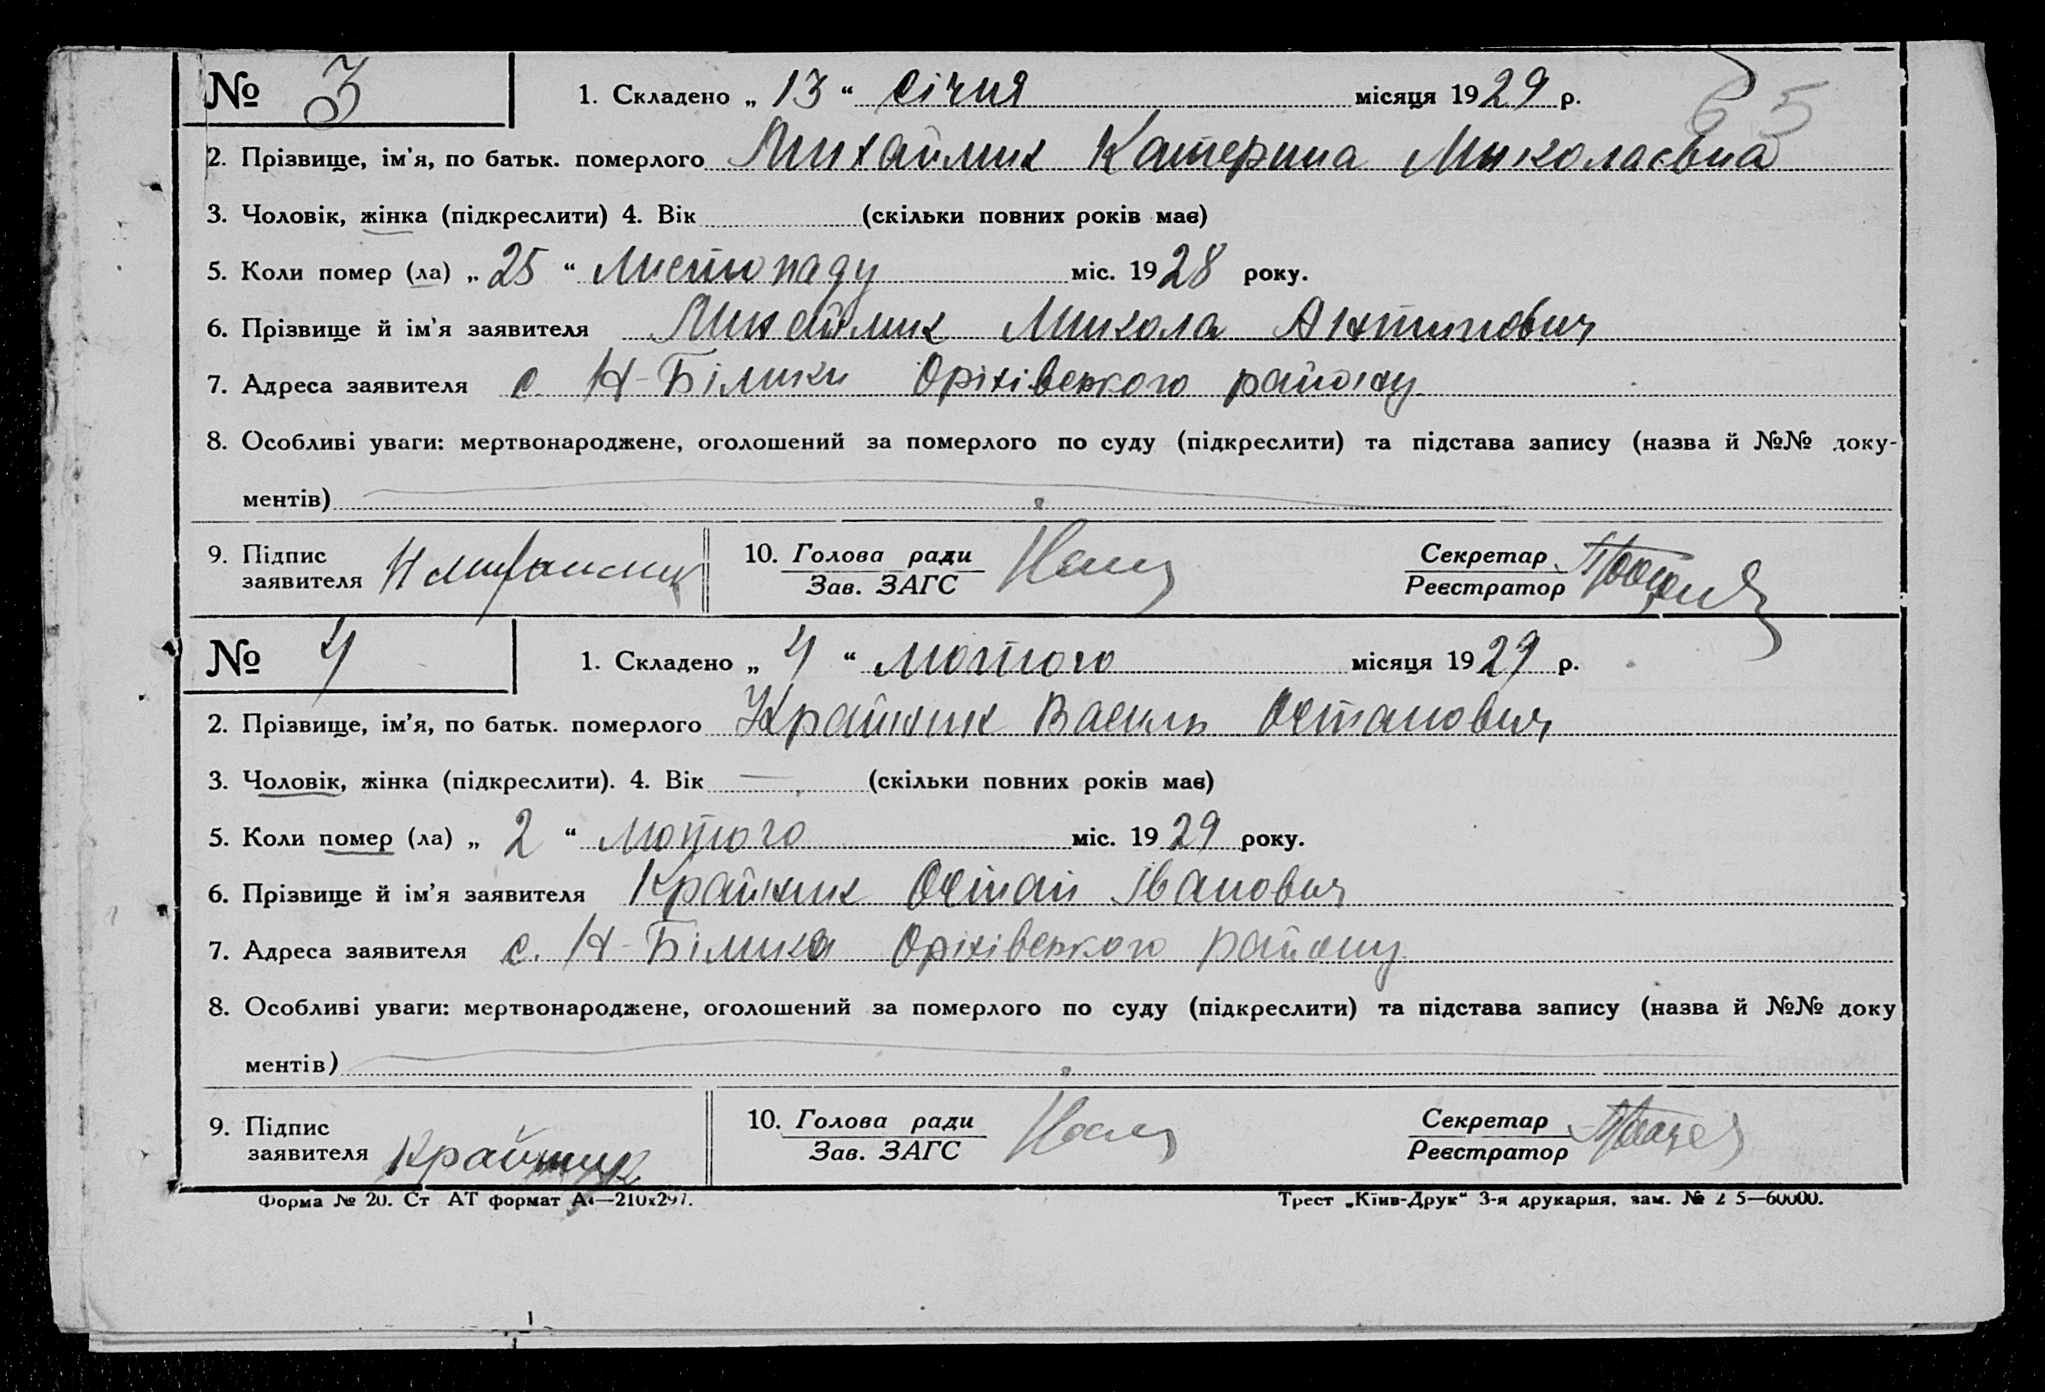 № 3 1. Складено „ 13 “ січня місяця 1929 р.
65
2. Прізвище, ім'я, по батьк. померлого Михайлик Катерина Миколаєвна
3. Чоловік, жінка (підкреслити) 4. Вік (скільки повних років має)
5. Коли помер (ла) „ 25 “ Листопаду міс. 1928 року.
6. Прізвище й ім'я заявителя Михайлик Микола Антипович
7. Адреса заявителя с. Н-Білики Оріхівського району
8. Особливі уваги: мертвонароджене, оголошений за померлого по суду (підкреслити) та підстава запису (назва й №№ доку-
ментів)
9. Підпис 10. Голова ради Секретар
заявителя Зав. ЗАГС Реєстратор
№ 4 1. Складено „ 4 “ лютого місяця 1929 р.
2. Прізвище, ім'я, по батьк. померлого Крайник Василь Остапович
3. Чоловік, жінка (підкреслити). 4. Вік — (скільки повних років має)
5. Коли помер (ла) „ 2 “ лютого міс. 1929 року.
6. Прізвище й ім'я заявителя Крайник Остап Іванович
7. Адреса заявителя с. Н-Білики Оріхівського району
8. Особливі уваги: мертвонароджене, оголошений за померлого по суду (підкреслити) та підстава запису (назва й №№ доку
ментів)
9. Підпис 10. Голова ради Секретар
заявителя Крайник Зав. ЗАГС Реєстратор
Форма № 20. Ст АТ формат А4—210х297. Трест „Київ-Друк“ 3-я друкарня, зам. № 2 5—60000.